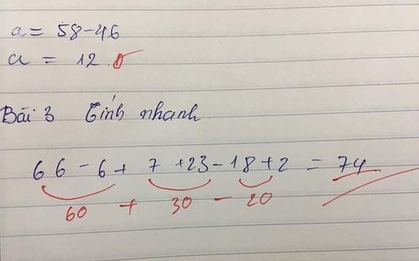 a = 58-46
a = 12
Bài 3 Tính nhanh.
66 - 6 + 7 + 23 - 18 + 2 = 74
60 + 30 - 20